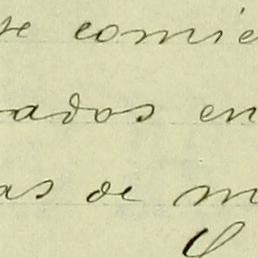 se comie
ados en
as de m